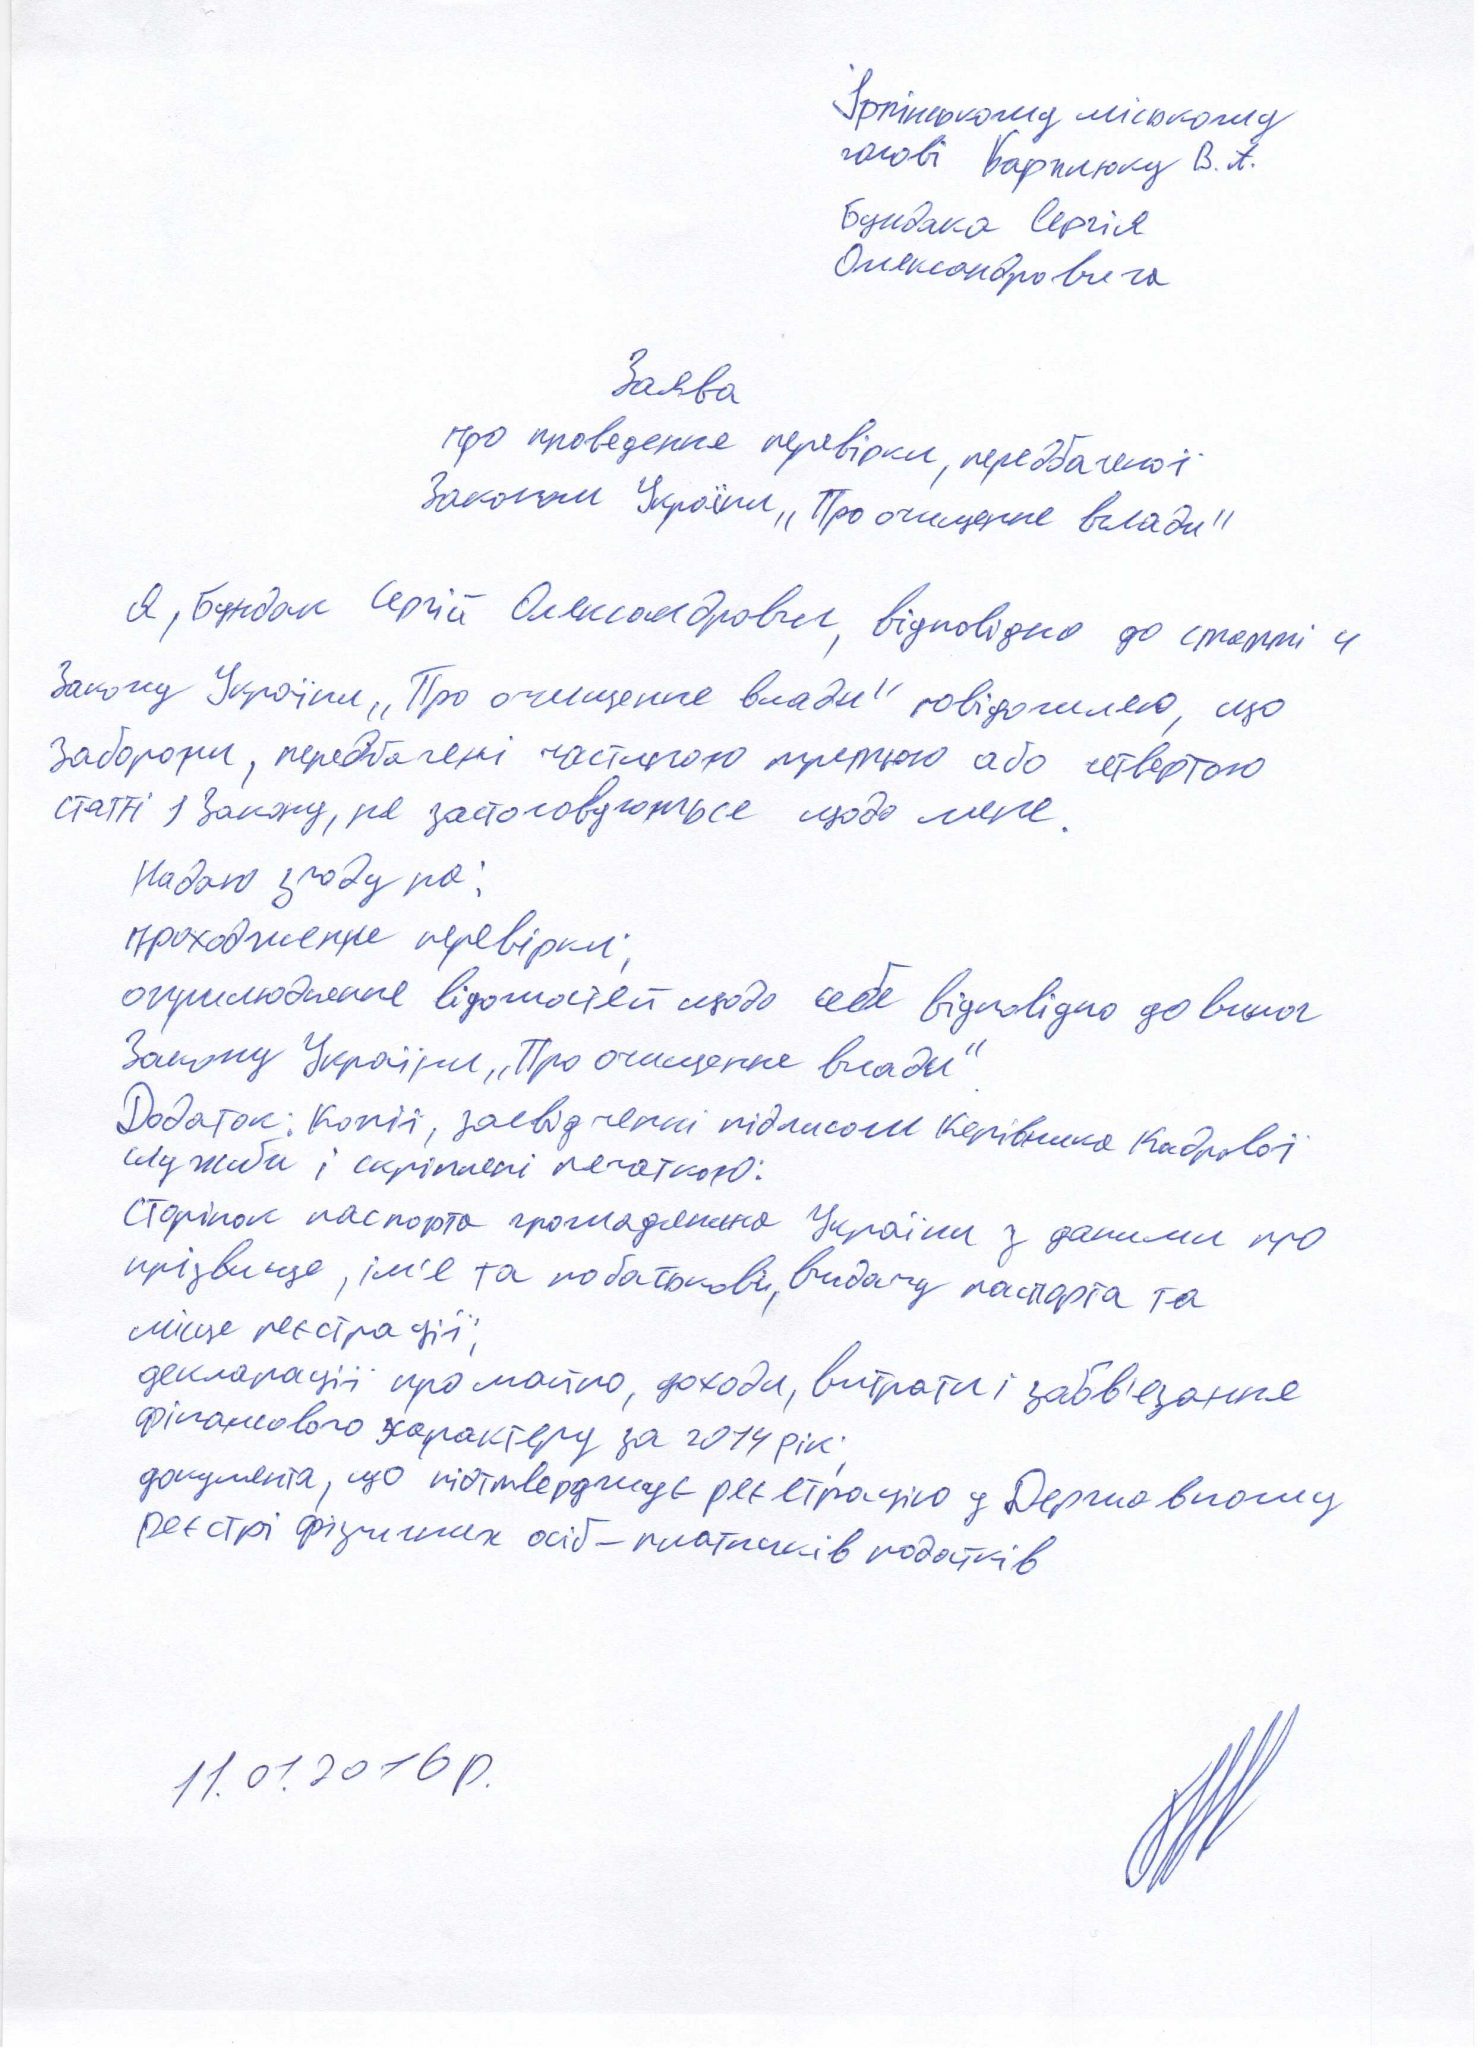 Ірпінському міському
голові Карплюку В.А.
Бундака Сергія
Олександровича
Заява
про проведення перевірки, передбаченої
Законом України „Про очищення влади"
Я, Бундак Сергій Олександрович, відповідно до статті 4
Закону України „Про очищення влади" повідомляю, що
заборони, передбачені частиною третьою або четвертою
статті 1 Закону, не застосовуються щодо мене.
Надаю згоду на:
проходження перевірки;
оприлюднення відомостей щодо себе відповідно до вимог
Закону України „Про очищення влади".
Додаток: Копії, засвідченні підписом керівника кадрової
служби і скріплені печаткою:
сторінок паспорта громадянина України з даними про
прізвище, ім'я та побатькові, видачу паспорта та
місце реєстрації;
декларації про майно, доходи, витрати і забов'язання
фінансового характеру за 2014 рік;
документа, що підтверджує реєстрацію у Державному
реєстрі фізичних осіб – платників податків
11.01.2016 р.